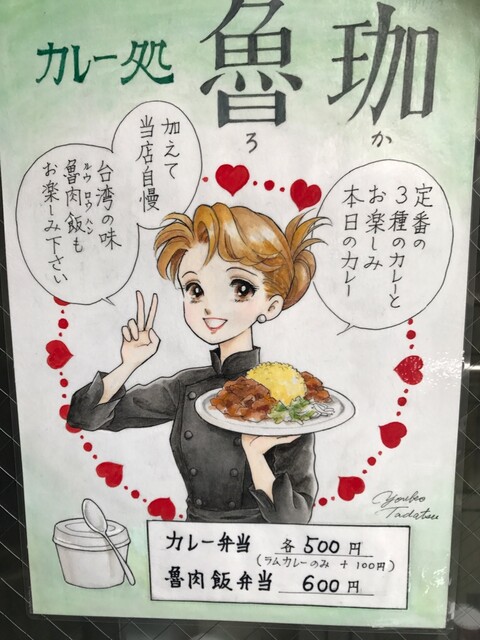 カレー処 魯珈
ろ か
定番の
3種のカレーと
お楽しみ
本日のカレー
加えて
当店自慢
台湾の味
魯肉飯も
ルウ ロウ ハン
お楽しみ下さい
Youko
Tadatsu
カレー弁当 各 500 円
(ラムカレーのみ +100円)
魯肉飯弁当 600 円